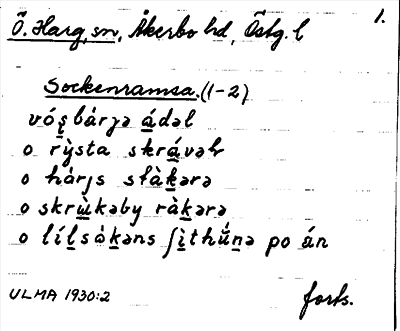 1.
Ö. Harg, sn, Åkerbo hd, Östg. l
Sockenramsa. (1-2)
vós̱bårɟə á̱dəl
o rỳsta skrá̱vəlr
o hárɟs stà̱ḵərə
o skrù̱kəby ràḵərə
o líḻsåḵəns ʃì̱thű̱ṉə po án
ULMA 1930:2
forts.